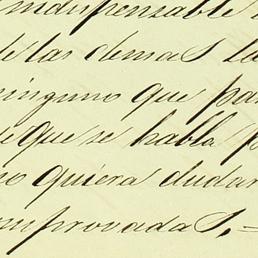 indispensable
de las demas
ninguno que
que se habla
no quiera dudar
comprovadas,=